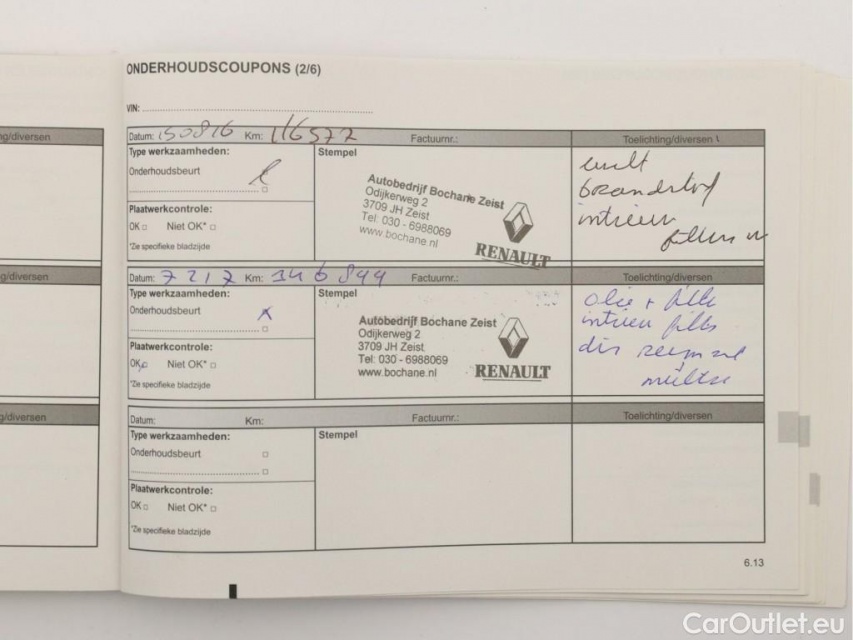 ONDERHOUDSCOUPONS (2/6)
VIN:
ng/diversen
Datum: 150816 Km: 116577 Factuurnr.: Toelichting/diversen
Type werkzaamheden:
Stempel
Onderhoudsbeurt
Plaatwerkcontrole:
OK Niet OK*
*Zie specifieke bladzijde
Autobedrijf Bochane Zeist
Odijkerweg 2
3709 JH Zeist
Tel: 030 - 6988069
www.bochane.nl
RENAULT
brandstof
intrieur
filters
g/diversen
Datum: 7 2 1 7 Km: 146 844 Factuurnr.: Toelichting/diversen
Type werkzaamheden:
Stempel
Onderhoudsbeurt
Plaatwerkcontrole:
OK Niet OK*
*Zie specifieke bladzijde
Autobedrijf Bochane Zeist
Odijkerweg 2
3709 JH Zeist
Tel: 030 - 6988069
www.bochane.nl
RENAULT
olie + filter
intrieu filter
dis riem
g/diversen
Datum: Km: Factuurnr.: Toelichting/diversen
Type werkzaamheden:
Stempel
Onderhoudsbeurt
Plaatwerkcontrole:
OK Niet OK*
*Zie specifieke bladzijde
6.13
CarOutlet.eu